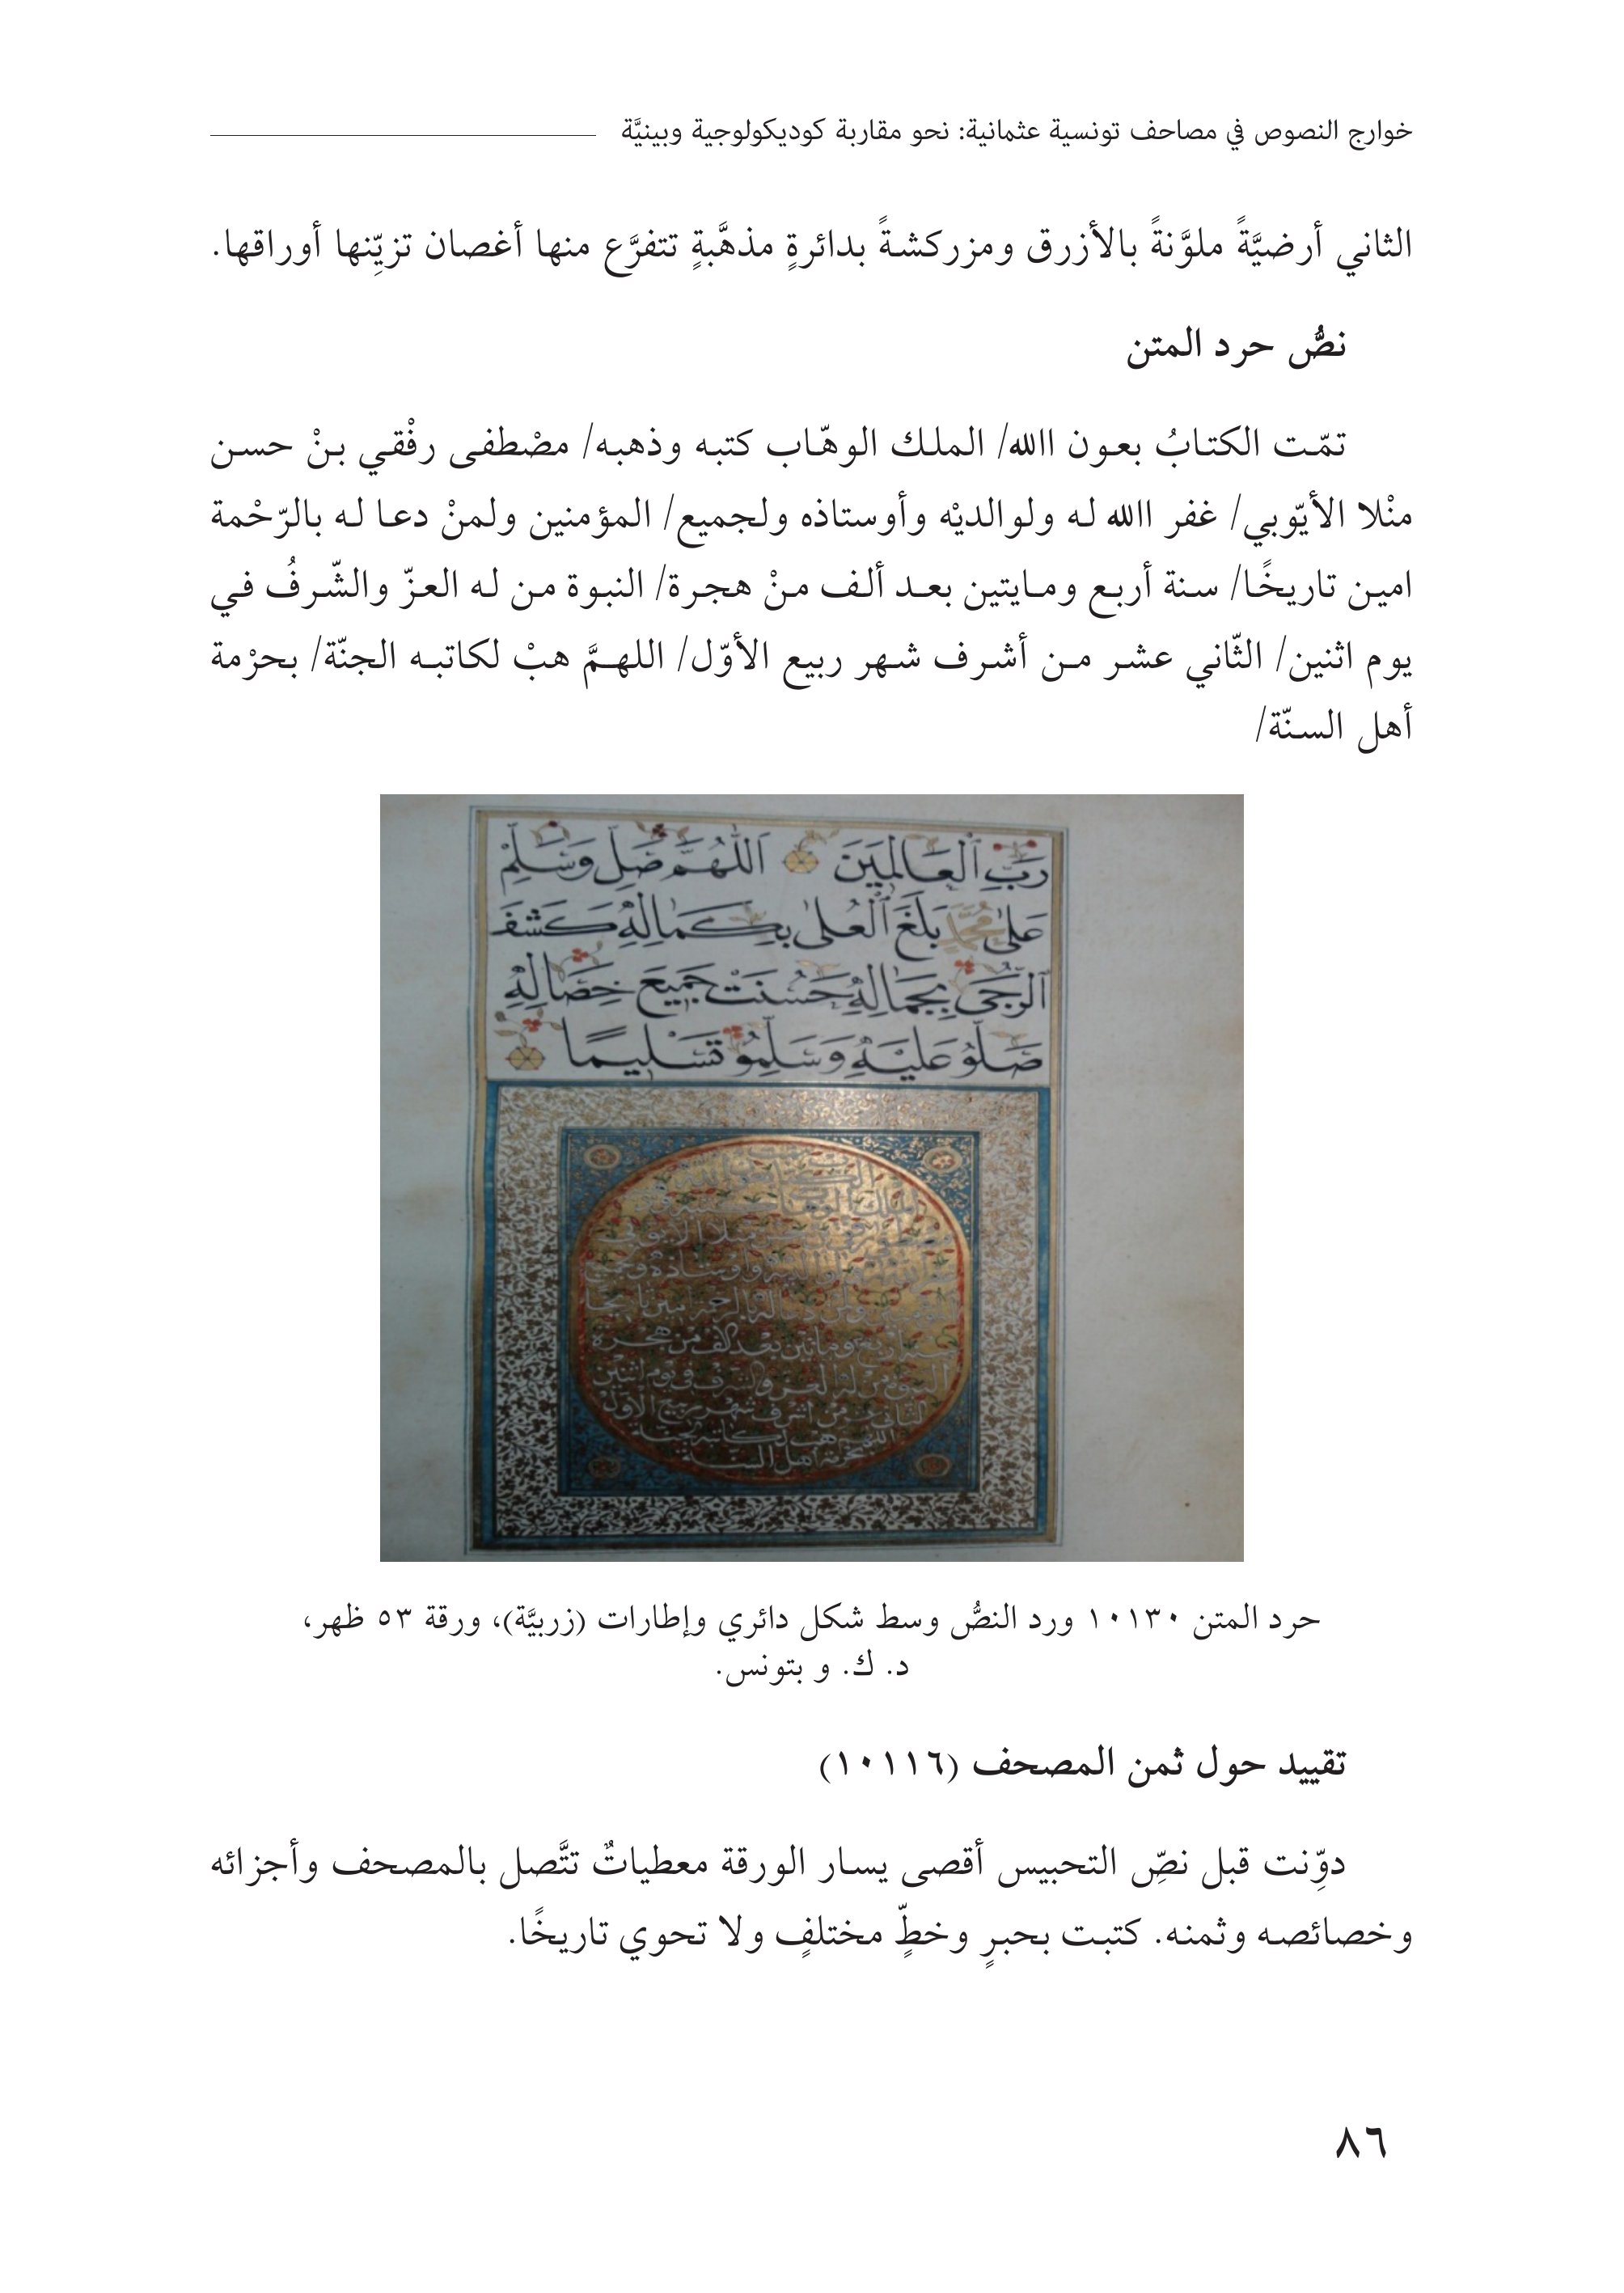 خوارج النصوص في مصاحف تونسية عثمانية: نحو مقاربة كوديكولوجية وبينيَّة
الثاني أرضيَّةً ملوَّنةً بالأزرق ومزركشةً بدائرةٍ مذهَّبةٍ تتفرَّع منها أغصان تزيِّنها أوراقها.
نصُّ حرد المتن
تمّت الكتابُ بعون االله/ الملك الوهّاب كتبه وذهبه/ مصْطفى رفْقي بنْ حسن
منْلا الأيّوبي/ غفر االله له ولوالديْه وأوستاذه ولجميع/ المؤمنين ولمنْ دعا له بالرّحْمة
امين تاريخًا/ سنة أربع ومايتين بعد ألف منْ هجرة/ النبوة من له العزّ والشّرفُ في
يوم اثنين/ الثّاني عشر من أشرف شهر ربيع الأوّل/ اللهمَّ هبْ لكاتبه الجنّة/ بحرْمة
أهل السنّة/
رَبِّ الْعَالَمِينَ اَللّٰهُمَّ صَلِّ وَسَلِّمْ
عَلٰى مُحَمَّدٍ بَلَغَ الْعُلٰى بِكَمَالِهِ كَشَفَ
الدُّجٰى بِجَمَالِهِ حَسُنَتْ جَمِيعُ خِصَالِهِ
صَلُّو عَلَيْهِ وَسَلِّمُو تَسْلِيمًا
الملك الوهاب
سنة اربع ومائتين بعد الف من هجرة
من له العز والشرف في يوم اثنين
الثاني عشر من اشرف شهر ربيع الاول
اللهم هب لكاتبه الجنة
بحرمة اهل السنة
حرد المتن ١٠١٣٠ ورد النصُّ وسط شكل دائري وإطارات (زربيَّة)، ورقة ٥٣ ظهر،
د. ك. و بتونس.
تقييد حول ثمن المصحف (١٠١١٦)
دوِّنت قبل نصِّ التحبيس أقصى يسار الورقة معطياتٌ تتَّصل بالمصحف وأجزائه
وخصائصه وثمنه. كتبت بحبرٍ وخطٍّ مختلفٍ ولا تحوي تاريخًا.
٨٦